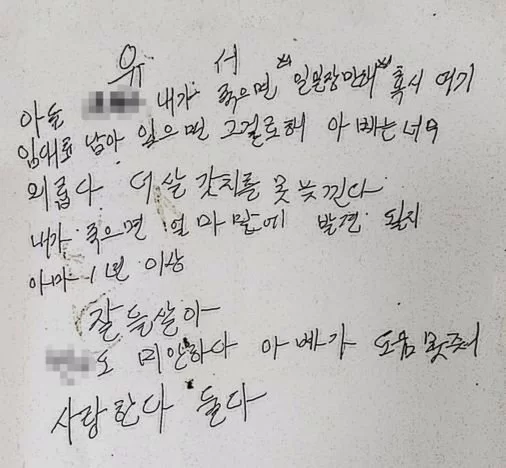 유 서
아들 내가 죽으면 "일본장만해" 혹시 여기
임대료 남아 있으면 그걸로해 아빠는너무
외롭다 더살 갓치를 못늣낀다
내가 죽으면 얼마만에 발견 될지
아마 1년 이상
잘들살아
도 미안하다 아빠가 도움못줘서
사랑한다 둘다